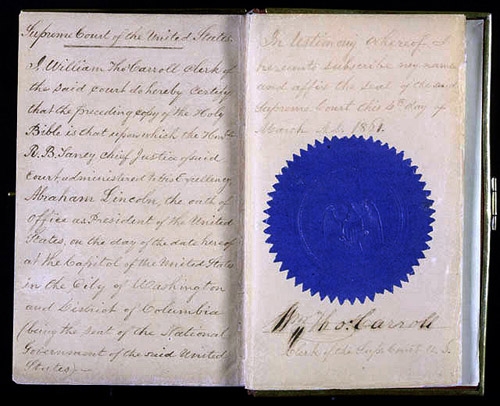 Supreme Court of the United States
I, William Tho Carroll clerk of
the said court do hereby certify
that the preceding copy of the Holy
Bible is that upon which the Honble
R. B. Taney chief Justice of said
court, administered to His Excellency
Abraham Lincoln, the oath of
office as President of the United
States, on the day of the date hereof
at the Capitol of the United States
in the City of Washington
and District of Columbia
(being the seat of the National
Government of the said United
States)—
In testimony whereof I
hereunto subscribe my name
and affix the seal of the said
Supreme Court this 4th day of
March A.D. 1861.
Wm Tho: Carroll
Clerk of the Sup. Court U. S.